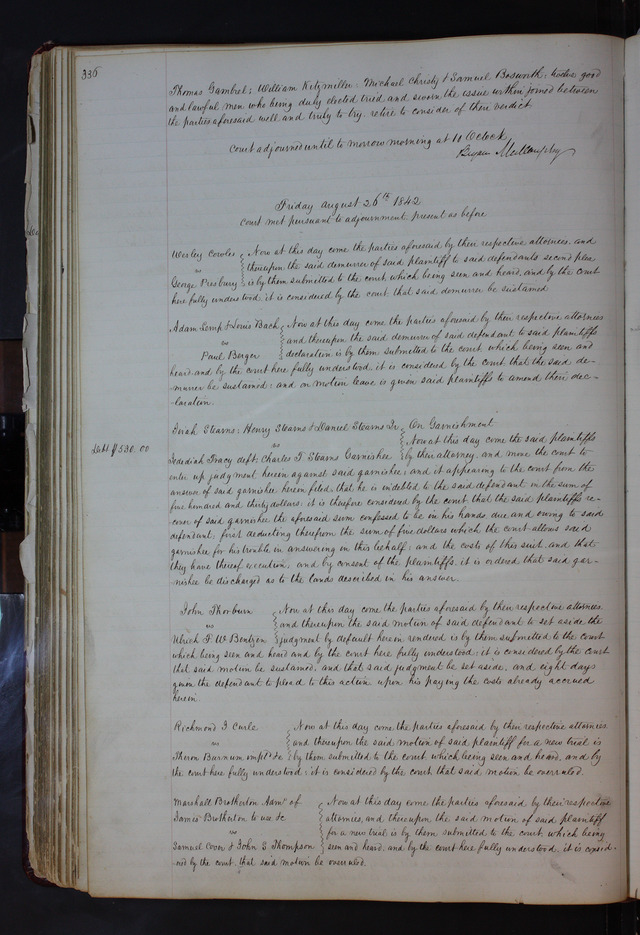 336
Thomas Gambrel; William Kitzmiller; Michael Christy & Samuel Bosworth, twelve good
and lawful men who being duly elected tried and sworn the issue within joined between
the parties aforesaid well and truly to try, retire to consider of there verdict
Court adjourned until to morrow morning at 11 Oclock
Bryan Mullanphy
Friday August 26th 1842
Court met pursuant to adjournment present as before
Wesley Cowles Now at this day come the parties aforesaid by their respective attornees, and
vs thereupon the said demurrer of said plaintiff to said defendants second plea
George Pinsbury is by them submitted to the court which being seen and heard, and by the court
here fully understood it is considered by the court that said demurrer be sustained
Adam Lemp & Louis Bach Now at this day come the parties aforesaid by their respective attornees
vs and thereupon the said demurrer of said defendant to said plaintiffs
Paul Berger declaration is by them submitted to the court which being seen and
heard and by the court here fully understood, it is considered by the court that the said de-
murrer be sustained: and on motion leave is given said plaintiffs to amend their dec-
laration.
Josiah Stearns; Henry Stearns & Daniel Stearns Jr On Garnishment
vs Now at this day come the said plaintiffs
Debt $530.00
Jedediah Tracy deft: Charles T. Stearns Garnishee by their attorney, and move the court to
enter up judgment herein against said garnishee; and it appearing to the court from the
answer of said garnishee herein filed, that he is indebted to the said defendant in the sum of
five hundred and thirty dollars; it is therefore considered by the court that the said plaintiffs re-
cover of said garnishee the aforesaid sum confessed to be in his hands due and owing to said
defendant; first deducting therefrom the sum of five dollars which the court allows said
garnishee for his trouble in answering in this behalf; and the costs of this suit and that
they have thereof execution, and by consent of the plaintiffs, it is ordered that said gar-
nishee be discharged as to the lands described in his answer.
John Thorburn Now at this day come the parties aforesaid by their respective attornees
vs and thereupon the said motion of said defendant to set aside the
Ulrick F. W. Bentzon judgment by default herein rendered is by them submitted to the court
which being seen and heard and by the court here fully understood; it is considered by the court
that said motion be sustained, and that said judgment be set aside, and eight days
given the defendant to plead to this action upon his paying the costs already accrued
herein.
Richmond J Curle Now at this day come the parties aforesaid by their respective attornees
vs and thereupon the said motion of said plaintiff for a new trial is
Theron Barnum &c by them submitted to the court which being seen and heard, and by
the court here fully understood; it is considered by the court that said motion be overruled.
Marshall Brotherton Admr of Now at this day come the parties aforesaid by their respective
James Brotherton to use &c attornies, and thereupon the said motion of said plaintiff
vs for a new trial is by them submitted to the court, which being
Samuel & John S Thompson seen and heard, and by the court here fully understood, it is consid-
ered by the court, that said motion be overruled.